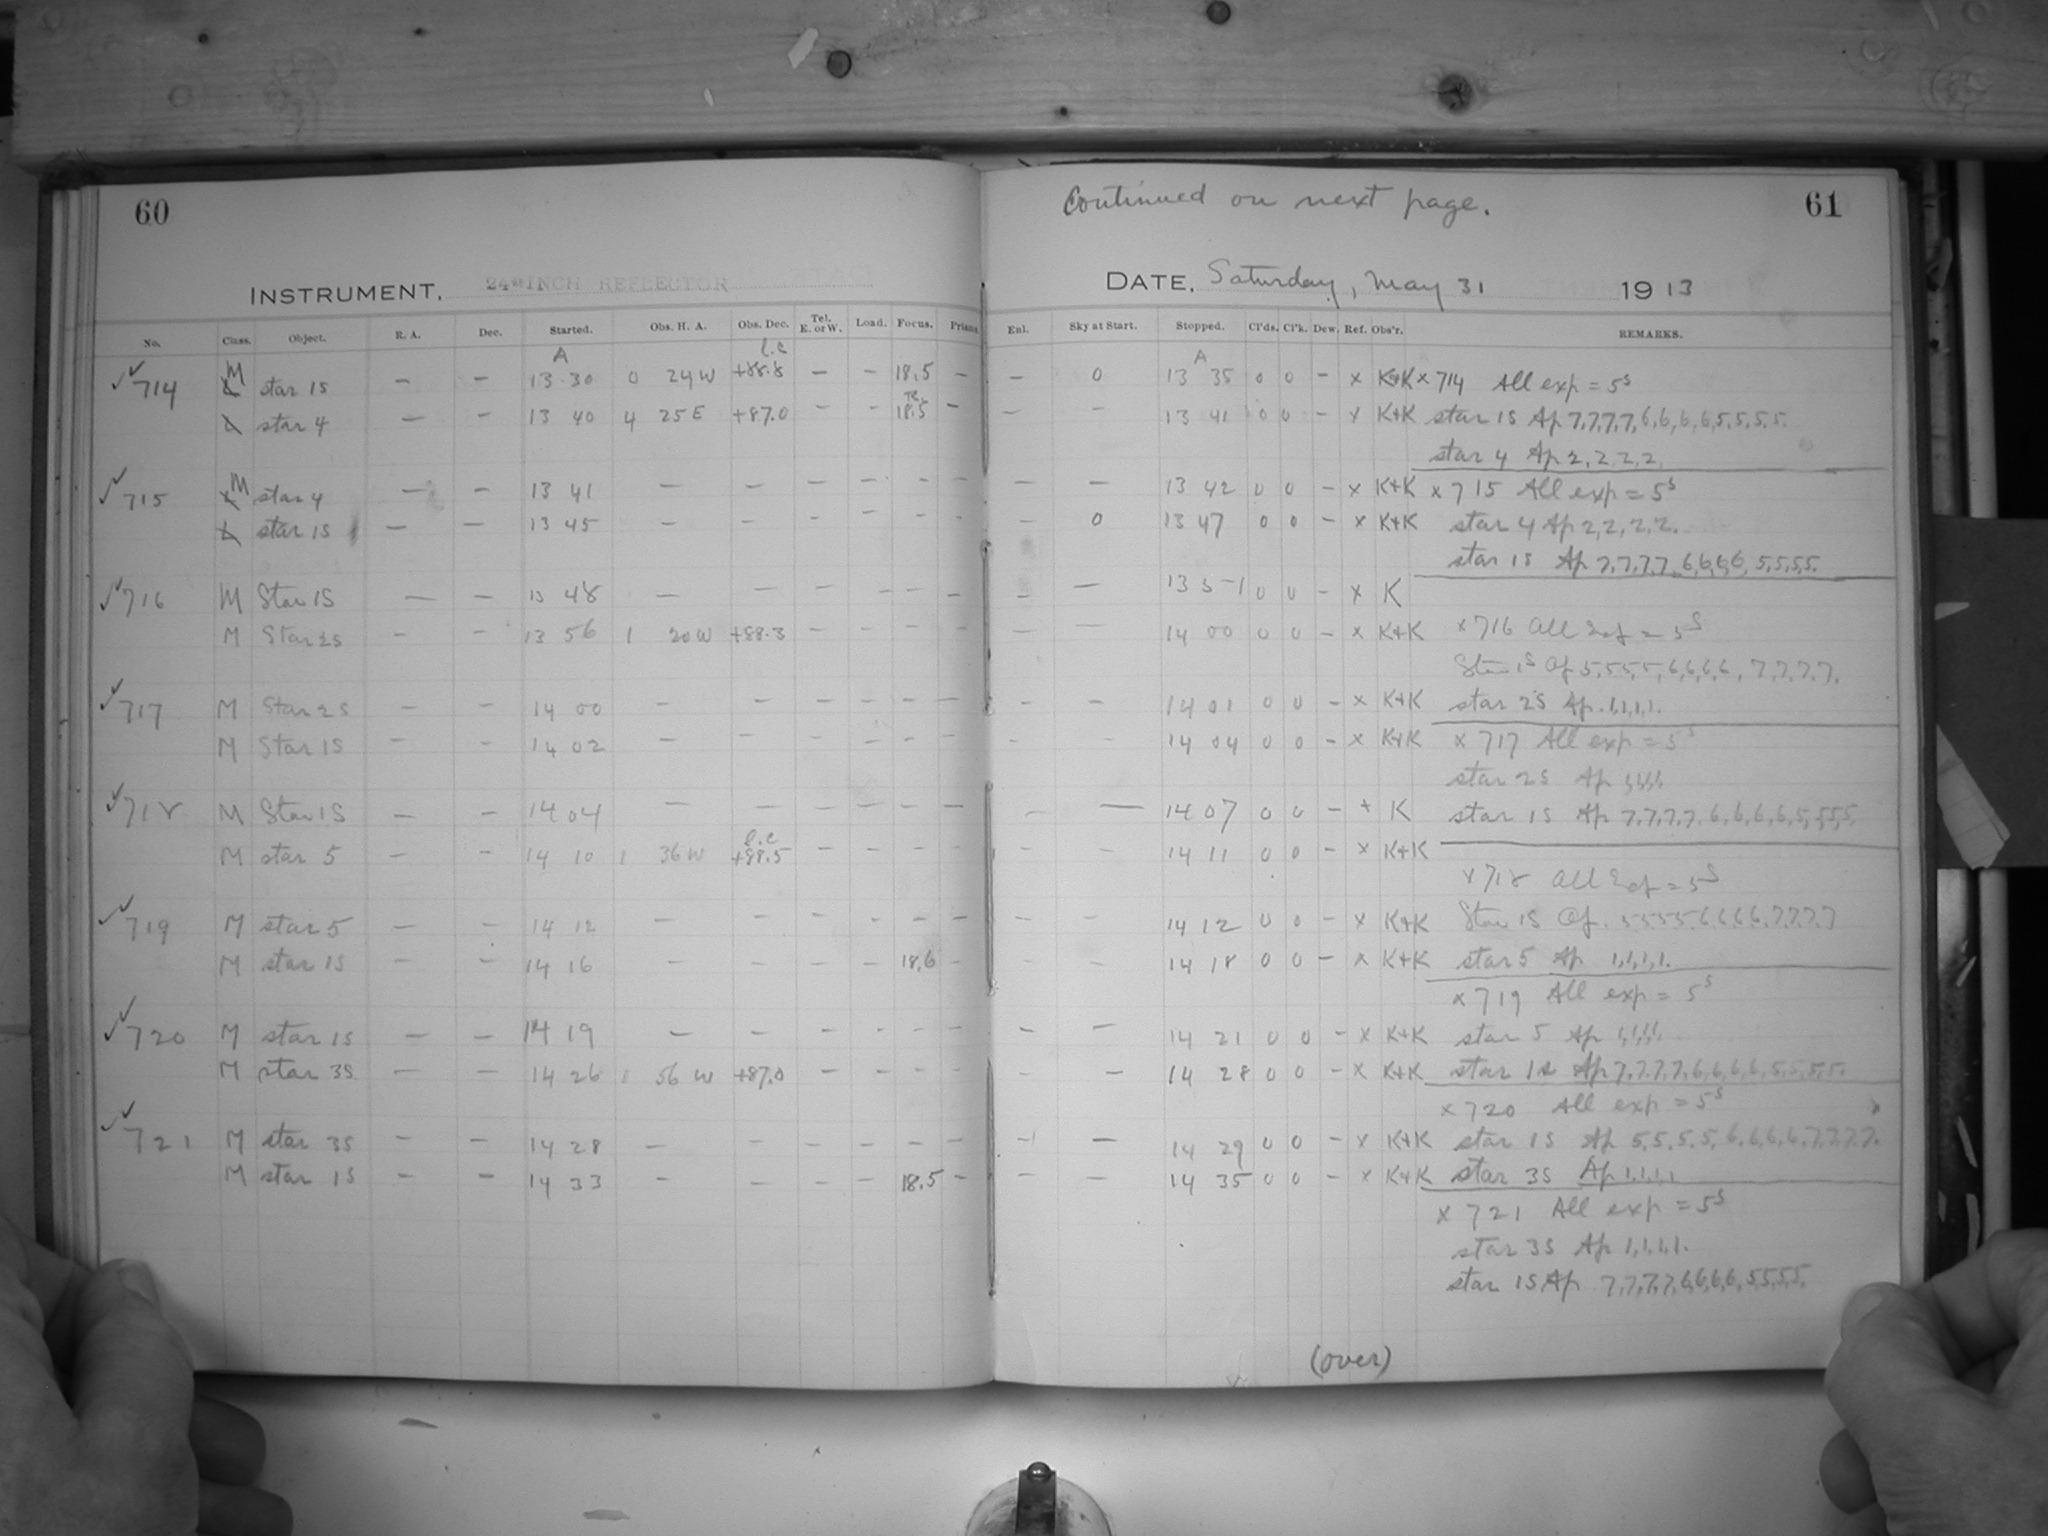 60
INSTRUMENT. 24-INCH REFLECTOR
No. Class. Object. R. A. Dec. Started. Obs. H. A. Obs. Dec. Tel. E. or W. Load. Focus. Prisms
A l.c
714 M L star 1S — — 13 30 0 24 W +88.8 — — 18.5 —
L star 4 — — 13 40 4 25 E +87.0 — — 18.5 —
715 M star 4 — — 13 41 — — — — — —
L star 1S — — 13 45 — — — — — —
716 M Star 1S — — 13 48 — — — — — —
M Star 2S — — 13 56 1 20 W +88.3 — — — —
717 M Star 2S — — 14 00 — — — — — —
M Star 1S — — 14 02 — — — — — —
718 M Star 1S — — 14 04 — — — — — —
l.c
M star 5 — — 14 10 1 36 W +88.5 — — — —
719 M star 5 — — 14 12 — — — — — —
M star 1S — — 14 16 — — — — 18.6 —
720 M star 1S — — 14 19 — — — — — —
M star 3S — — 14 26 1 56 W +87.0 — — — —
721 M star 3S — — 14 28 — — — — — —
M star 1S — — 14 33 — — — — 18.5 —
Continued on next page.
61
DATE. Saturday, May 31 1913
Enl. Sky at Start. Stopped. Cl'ds. Cl'k. Dew. Ref. Obs'r. REMARKS.
A
— 0 13 35 0 0 — x K+K x 714 All exp = 5s
— — 13 41 0 0 — x K+K star 1S Ap 7,7,7,7,6,6,6,6,5,5,5,5.
star 4 Ap 2,2,2,2.
— — 13 42 0 0 — x K+K x 715 All exp = 5s
— 0 13 47 0 0 — x K+K star 4 Ap 2,2,2,2.
star 1S Ap 7,7,7,7,6,6,6,6,5,5,5,5.
— — 13 51 0 0 — x K
— — 14 00 0 0 — x K+K x 716 All Exp = 5s
Star 1S Ap 5,5,5,5,6,6,6,6,7,7,7,7.
— — 14 01 0 0 — x K+K star 2S Ap. 1,1,1,1.
— — 14 04 0 0 — x K+K x 717 All exp = 5s
star 2S Ap 1,1,1,1.
— — 14 07 0 0 — + K star 1S Ap 7,7,7,7,6,6,6,6,5,5,5,5.
— — 14 11 0 0 — x K+K
x 718 All Exp = 5s
— — 14 12 0 0 — x K+K Star 1S Ap. 5 5 5 5 6 6 6 6,7,7,7,7
— — 14 18 0 0 — x K+K star 5 Ap 1,1,1,1.
x 719 All exp = 5s
— — 14 21 0 0 — x K+K star 5 Ap 1,1,1,1.
— — 14 28 0 0 — x K+K star 1S Ap 7,7,7,7,6,6,6,6,5,5,5,5.
x 720 All exp = 5s
— — 14 29 0 0 — x K+K star 1S Ap 5,5,5,5,6,6,6,6,7,7,7,7.
— — 14 35 0 0 — x K+K star 3S Ap 1,1,1,1
x 721 All exp = 5s
star 3S Ap 1,1,1,1.
star 1S Ap 7,7,7,7,6,6,6,6,5,5,5,5.
(over)